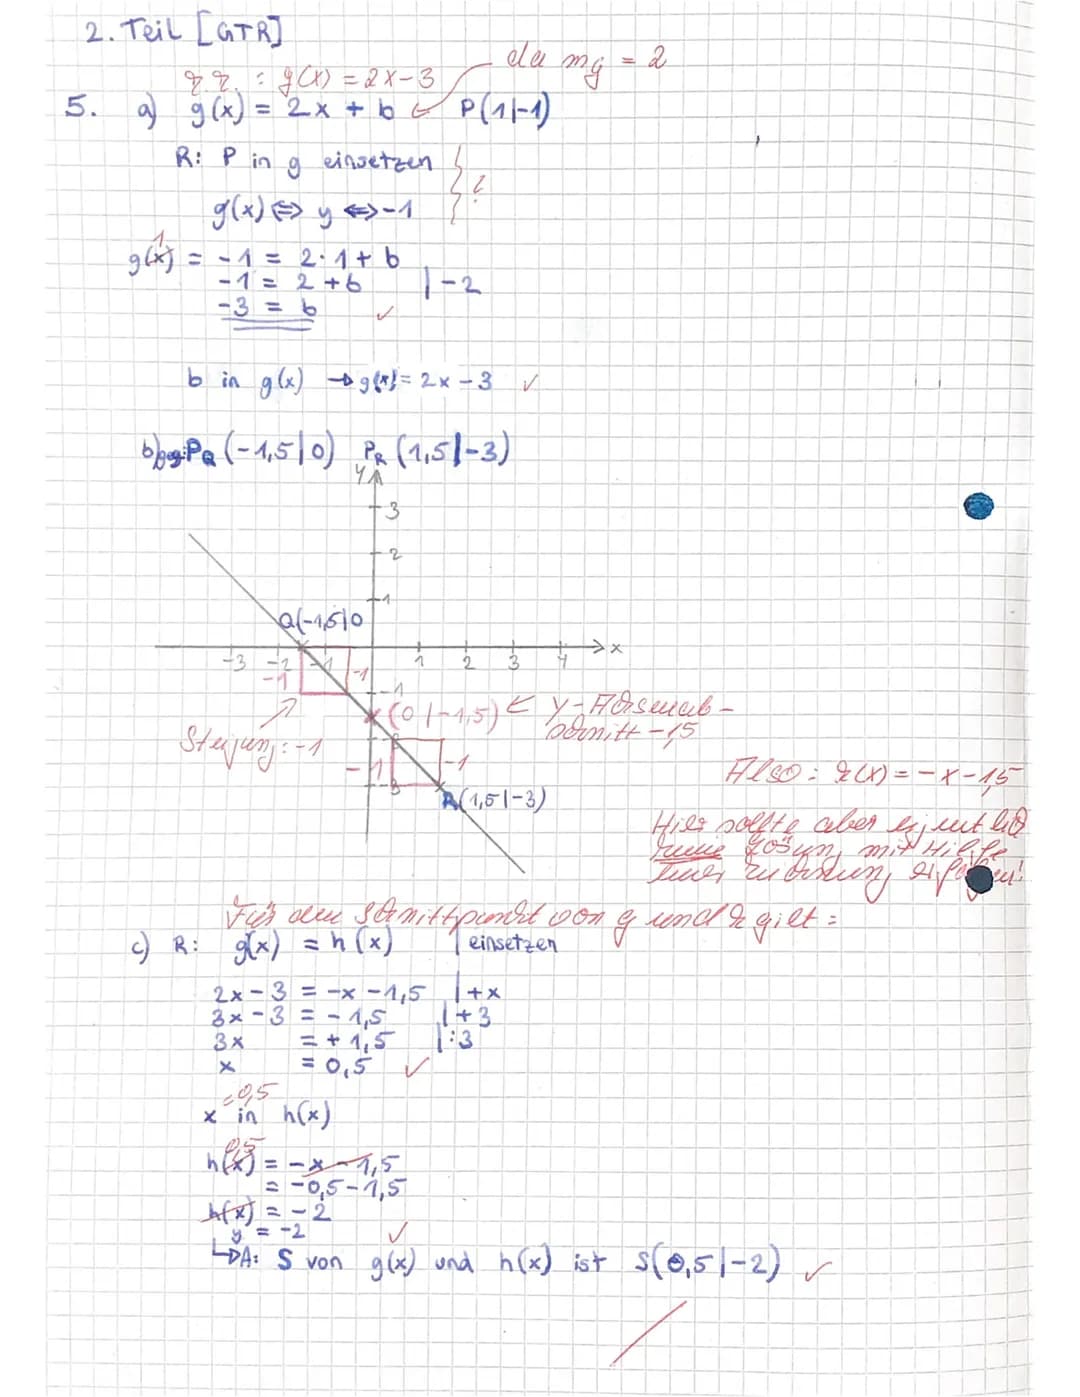 2. Teil [GTR]
da mg = 2
z.z. : g(x) = 2x-3
5. a) g(x) = 2x + b P(1|-1)
R: P in g einsetzen
?
g(x) ⇔ y ⇔ -1
1
g(x) = -1 = 2·1 + b
-1 = 2 + b | -2
-3 = b ✓
b in g(x) → g(x) = 2x - 3 ✓
b) geg: PQ (-1,5|0) PR (1,5|-3)
y
3
2
1
Q(-1,5|0
-3 -2 -1 1 2 3 4 x
-1 -1
-1
(0|-1,5) ← y-Achsenab-
schnitt -1,5
Steigung: -1
-1 -1
-3
Also: h(x) = -x-1,5
R(1,5|-3)
Hier sollte aber eigentlich
keine Lösung mit Hilfe
einer Zeichnung erfolgen!
Für den Schnittpunkt von g und h gilt:
c) R: g(x) = h(x) | einsetzen
2x - 3 = -x - 1,5 | +x
3x - 3 = -1,5 | +3
3x = +1,5 | :3
x = 0,5 ✓
=0,5
x in h(x)
0,5
h(x) = -x - 1,5
= -0,5 - 1,5
h(x) = -2
y = -2 ✓
↳ A: S von g(x) und h(x) ist S(0,5|-2) ✓